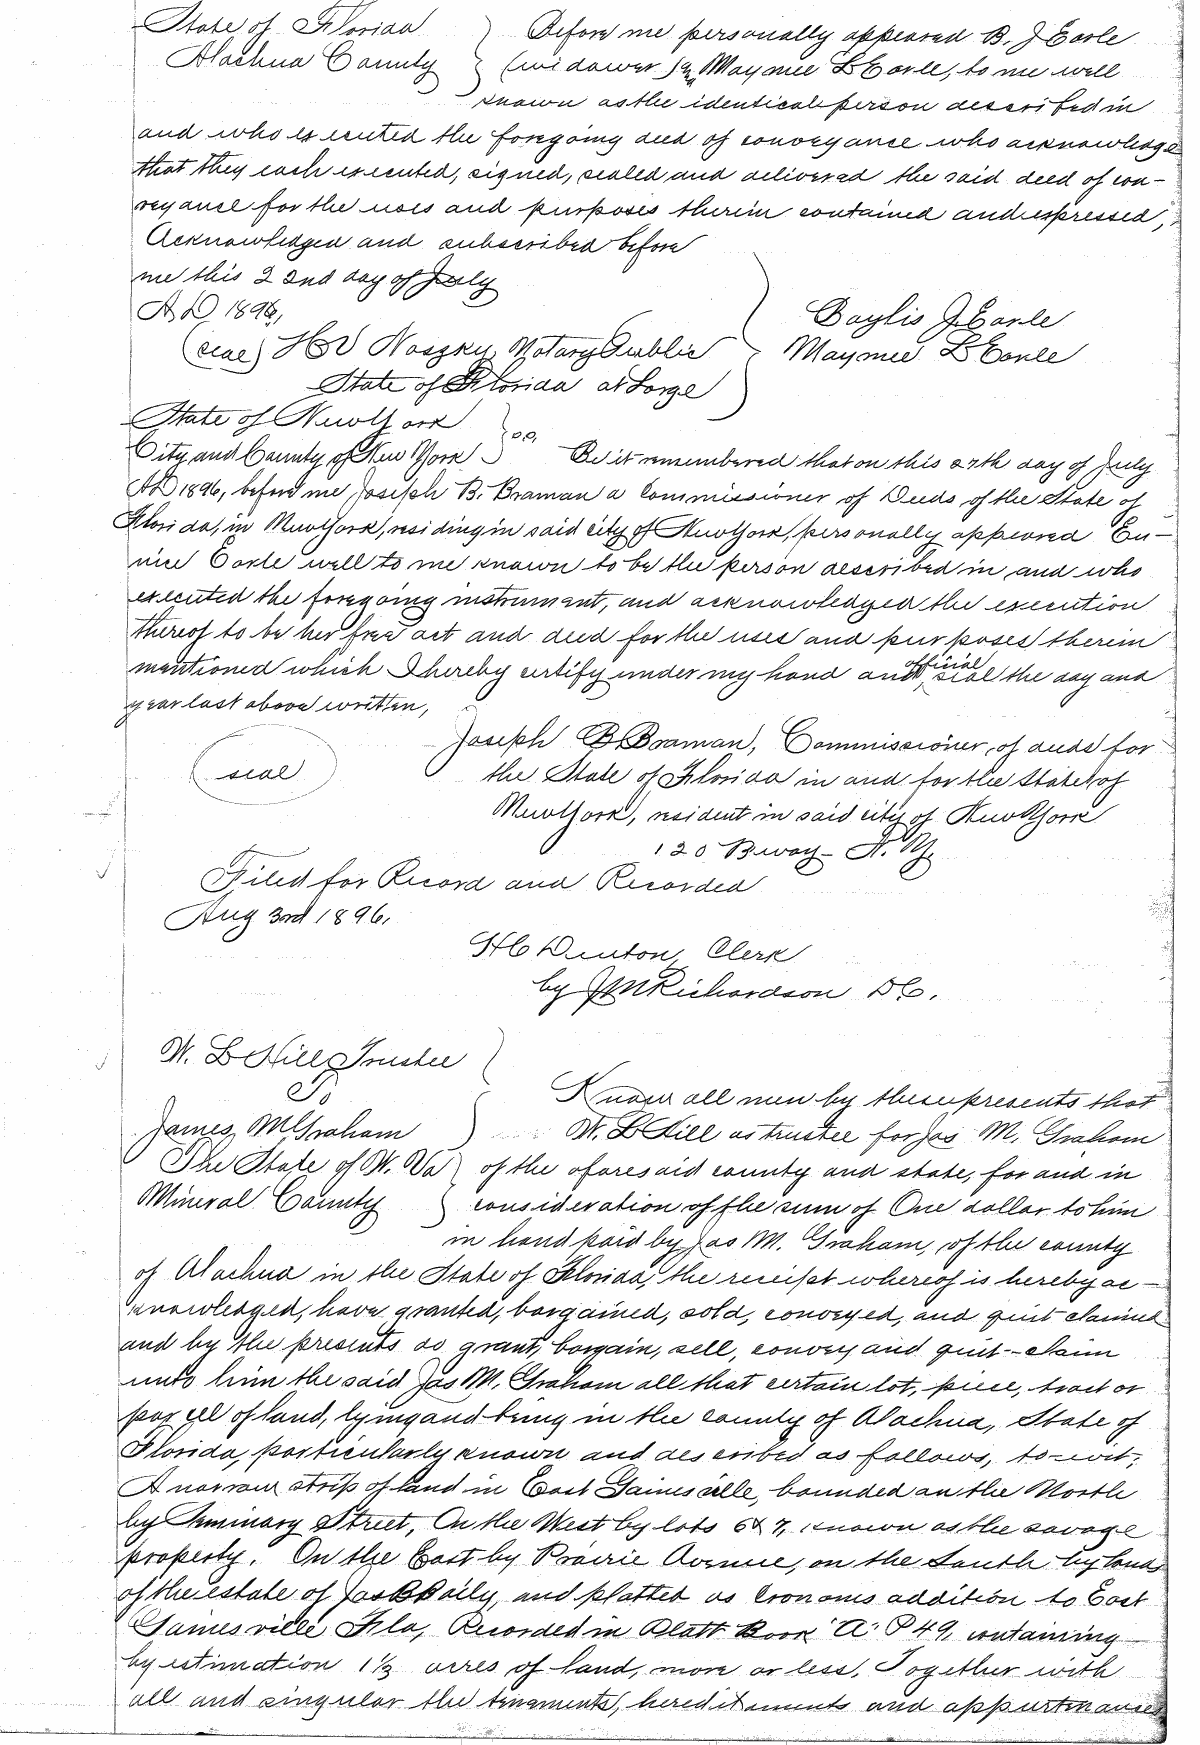 State of Florida } Before me personally appeared B. J Earle
Alachua County } (widower) & Maymee L Earle, to me well
known as the identical person described in
and who executed the foregoing deed of conveyance who acknowledge
that they each executed, signed, sealed and delivered the said deed of con-
veyance for the uses and purposes therein contained and expressed,
Acknowledged and subscribed before
me this 22nd day of July
A D 1896,
Baylis J. Earle
(seal) Notary Public
Maymee L Earle
State of Florida at Large
State of New York
City and County of New York } ss, Be it remembered that on this 27th day of July
AD 1896, before me Joseph B. Braman a Commissioner of Deeds of the State of
Florida, in New York, residing in said city of New York, personally appeared Eu-
nice Earle well to me known to be the person described in and who
executed the foregoing instrument, and acknowledged the execution
thereof to be her free act and deed for the uses and purposes therein
mentioned which I hereby certify under my hand and official seal the day and
year last above written,
Joseph B. Braman, Commissioner of deeds for
(seal) the State of Florida in and for the State of
New York, resident in said city of New York
120 Bway - N. Y.
Filed for Record and Recorded
Aug 3rd 1896.
H C Denton, Clerk
by J M Richardson D C.
W. L Hill Trustee
To
Know all men by these presents that
James, M Graham } W. L Hill as trustee for Jas M. Graham
The State of W. Va } of the aforesaid county and state, for and in
Mineral County } consideration of the sum of One dollar to him
in hand paid by Jas M. Graham, of the county
of Alachua in the State of Florida, the receipt whereof is hereby ac-
knowledged, have granted, bargained, sold, conveyed, and quit claimed
and by the presents do grant, bargain, sell, convey and quit-claim
unto him the said Jas M. Graham all that certain lot, piece, tract or
parcel of land, lying and being in the county of Alachua, State of
Florida, particularly known and described as follows, to-wit;
A narrow strip of land in East Gainesville, bounded on the North
by Seminary Street, On the West by lots 6 & 7, known as the savage
property. On the East by Prairie Avenue, on the South by lands
of the estate of Jas Baily, and platted as addition to East
Gainesville Fla, Recorded in Platt Book "A" P 49, containing
by estimation 1½ acres of land, more or less, Together with
all and singular the tenaments, hereditaments and appurtenances